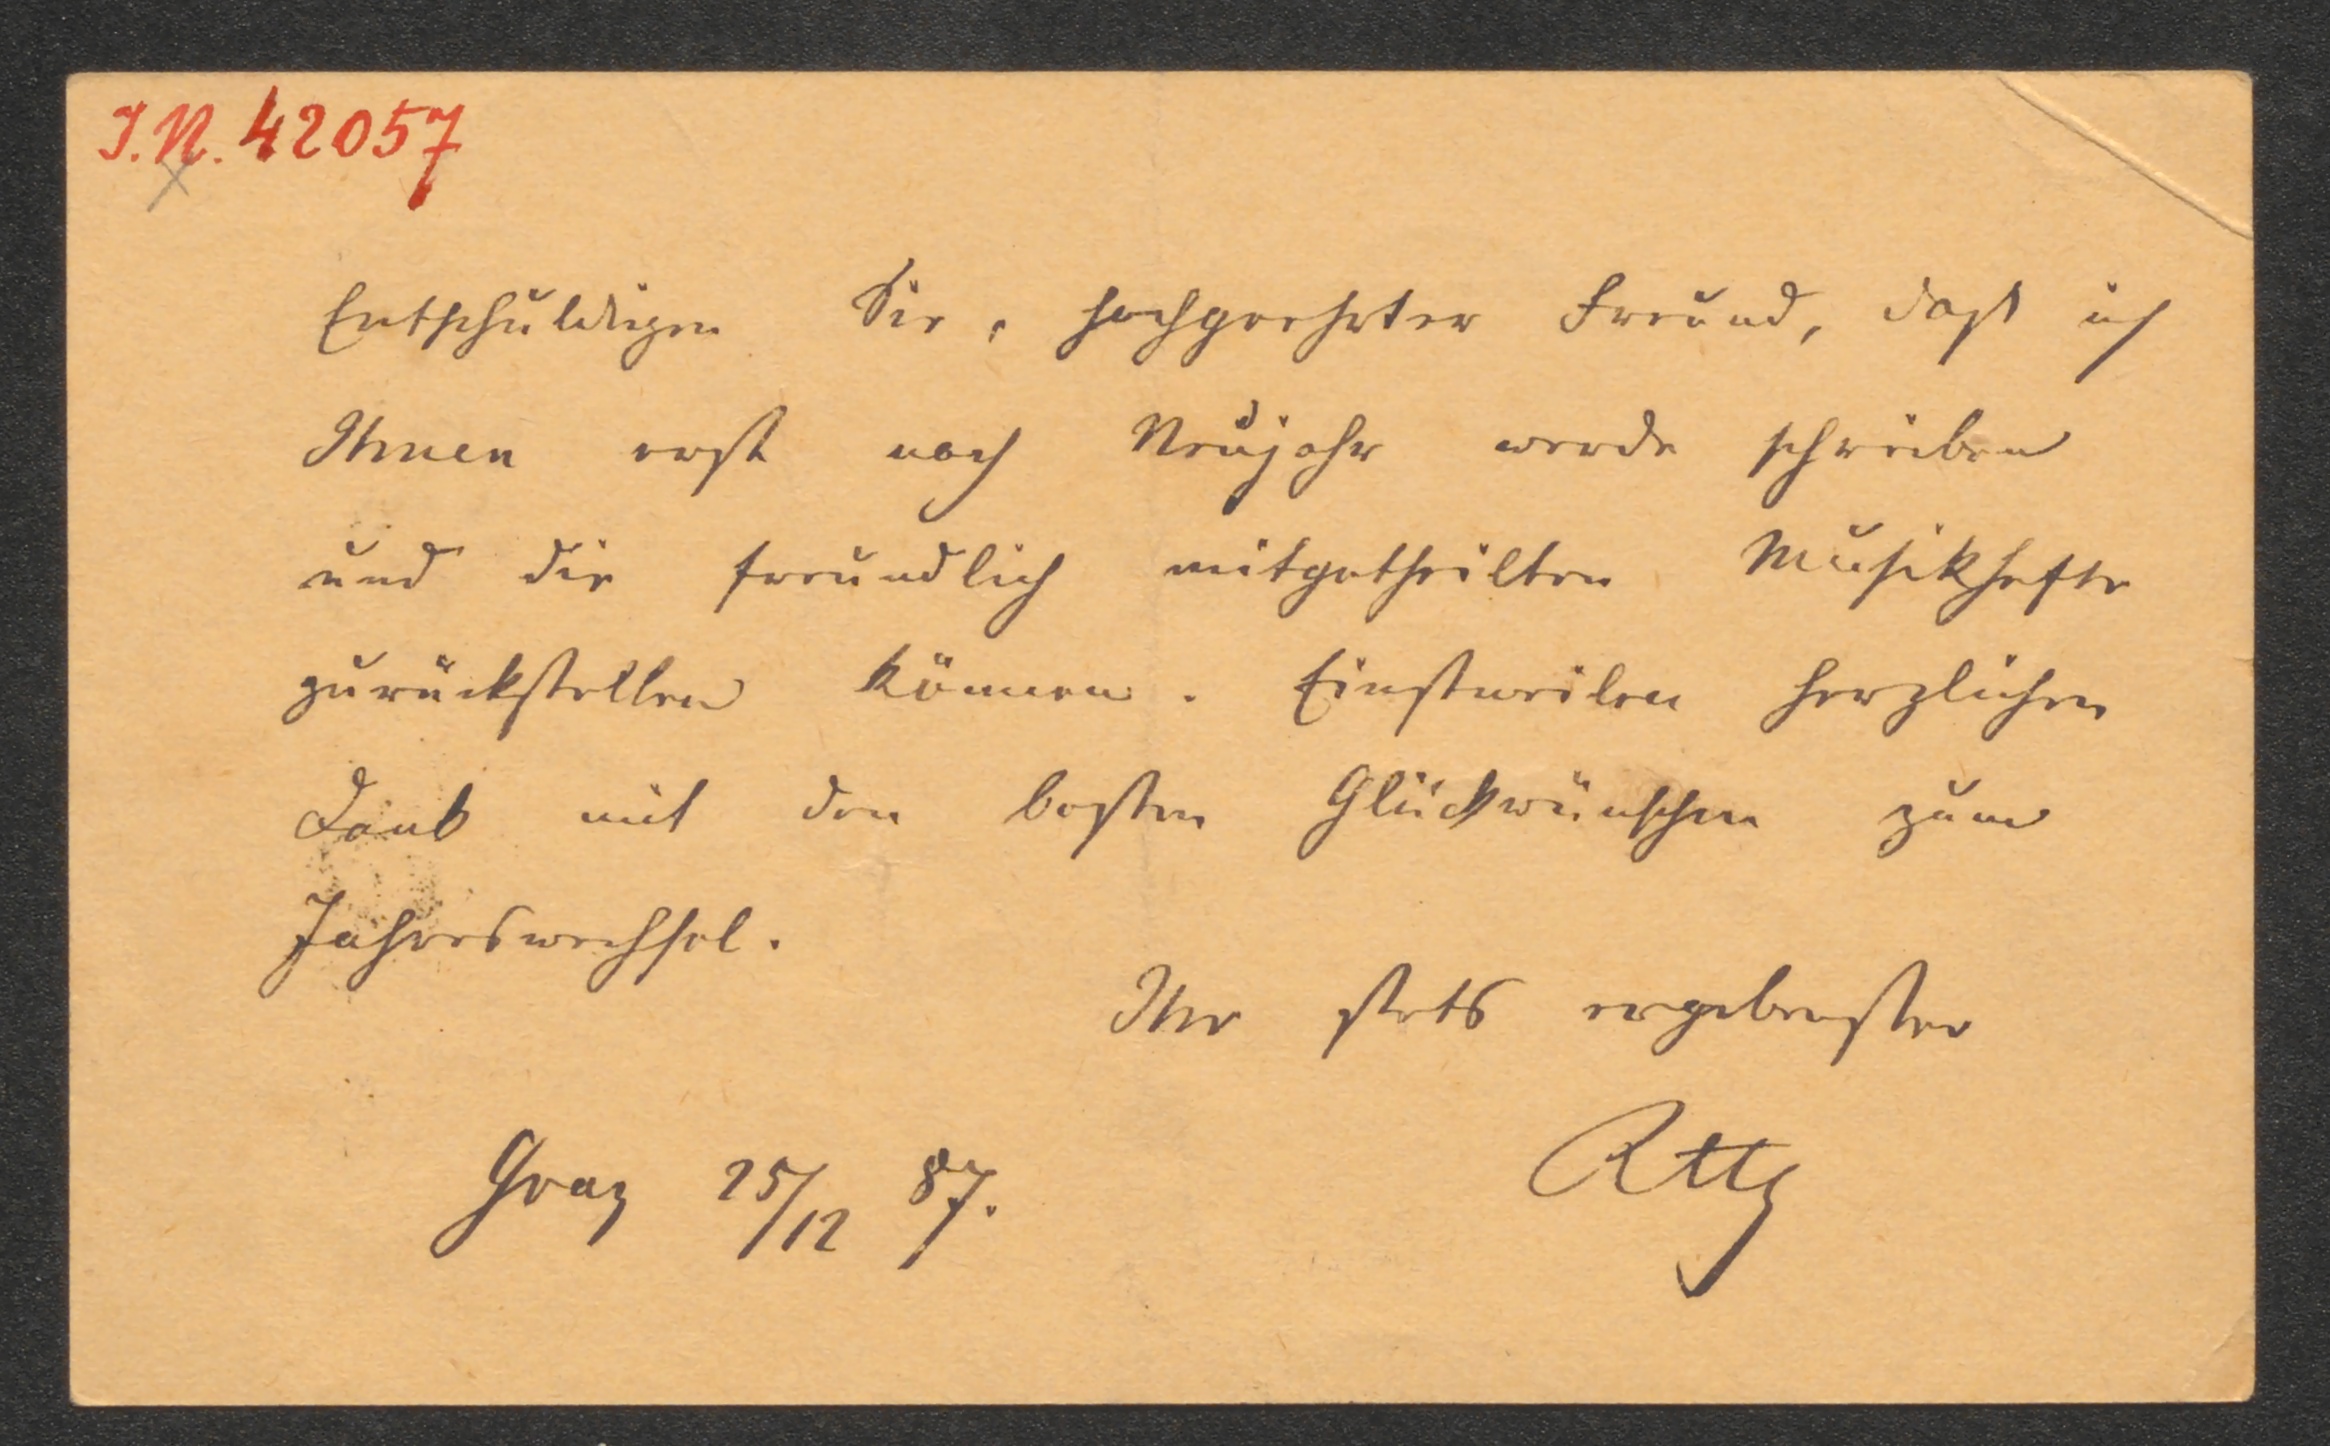 I.N. 42057
Entschuldigen Sie, hochgeehrter Freund, dass ich
Ihnen erst nach Neujahr werde schreiben
und die freundlich mitgetheilten Musikhefte
zurückstellen können. Einstweilen herzlichen
Dank mit den besten Glückwünschen zum
Jahreswechsel.
Ihr stets ergebenster
Graz 25/12 87.